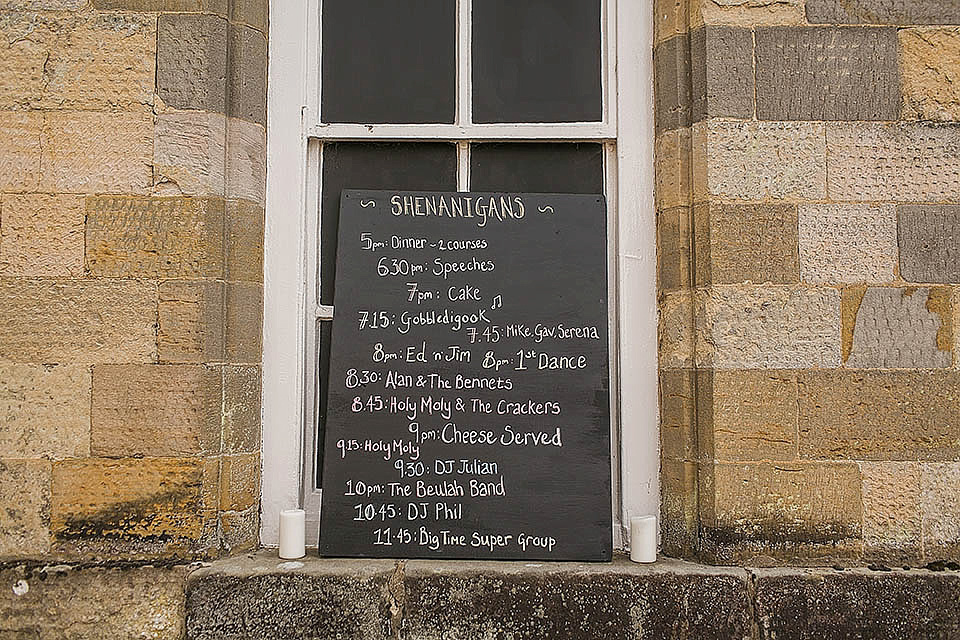 ~ SHENANIGANS ~
5pm: Dinner ~ 2 courses
6.30pm: Speeches
7pm: Cake
7.15: Gobbledigook
7.45: Mike, Gav, Serena
8pm: Ed 'n' Jim
8pm: 1st Dance
8.30: Alan & The Bennets
8.45: Holy Moly & The Crackers
9pm: Cheese Served
9.15: Holy Moly
9.30: DJ Julian
10pm: The Beulah Band
10.45: DJ Phil
11.45: Big Time Super Group